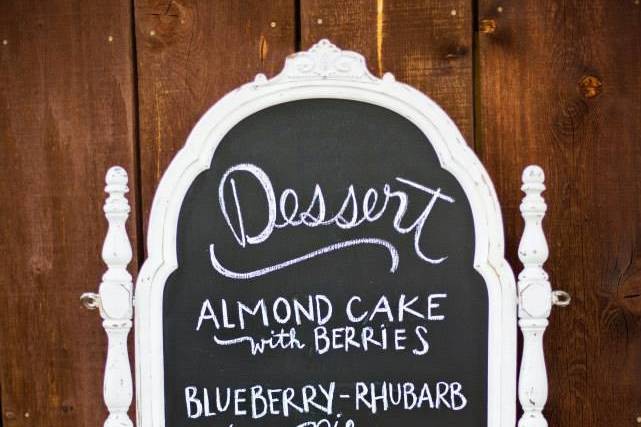 Dessert
ALMOND CAKE
with BERRIES
BLUEBERRY-RHUBARB